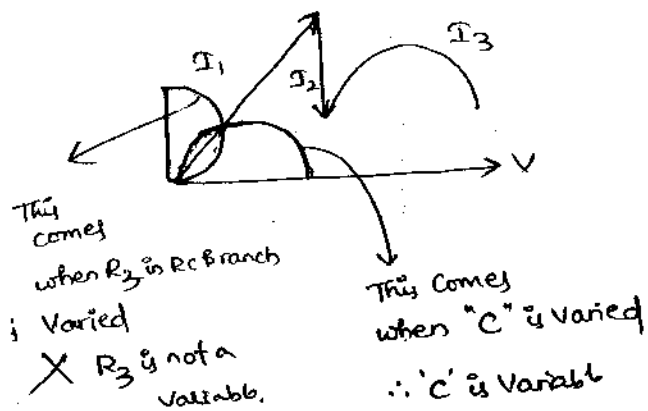 I₁
I₂
I₃
V
This
comes
when R₃ in RC Branch
is Varied
X R₃ is not a
Variable.
This Comes
when "C" is Varied
∴ 'C' is Variable